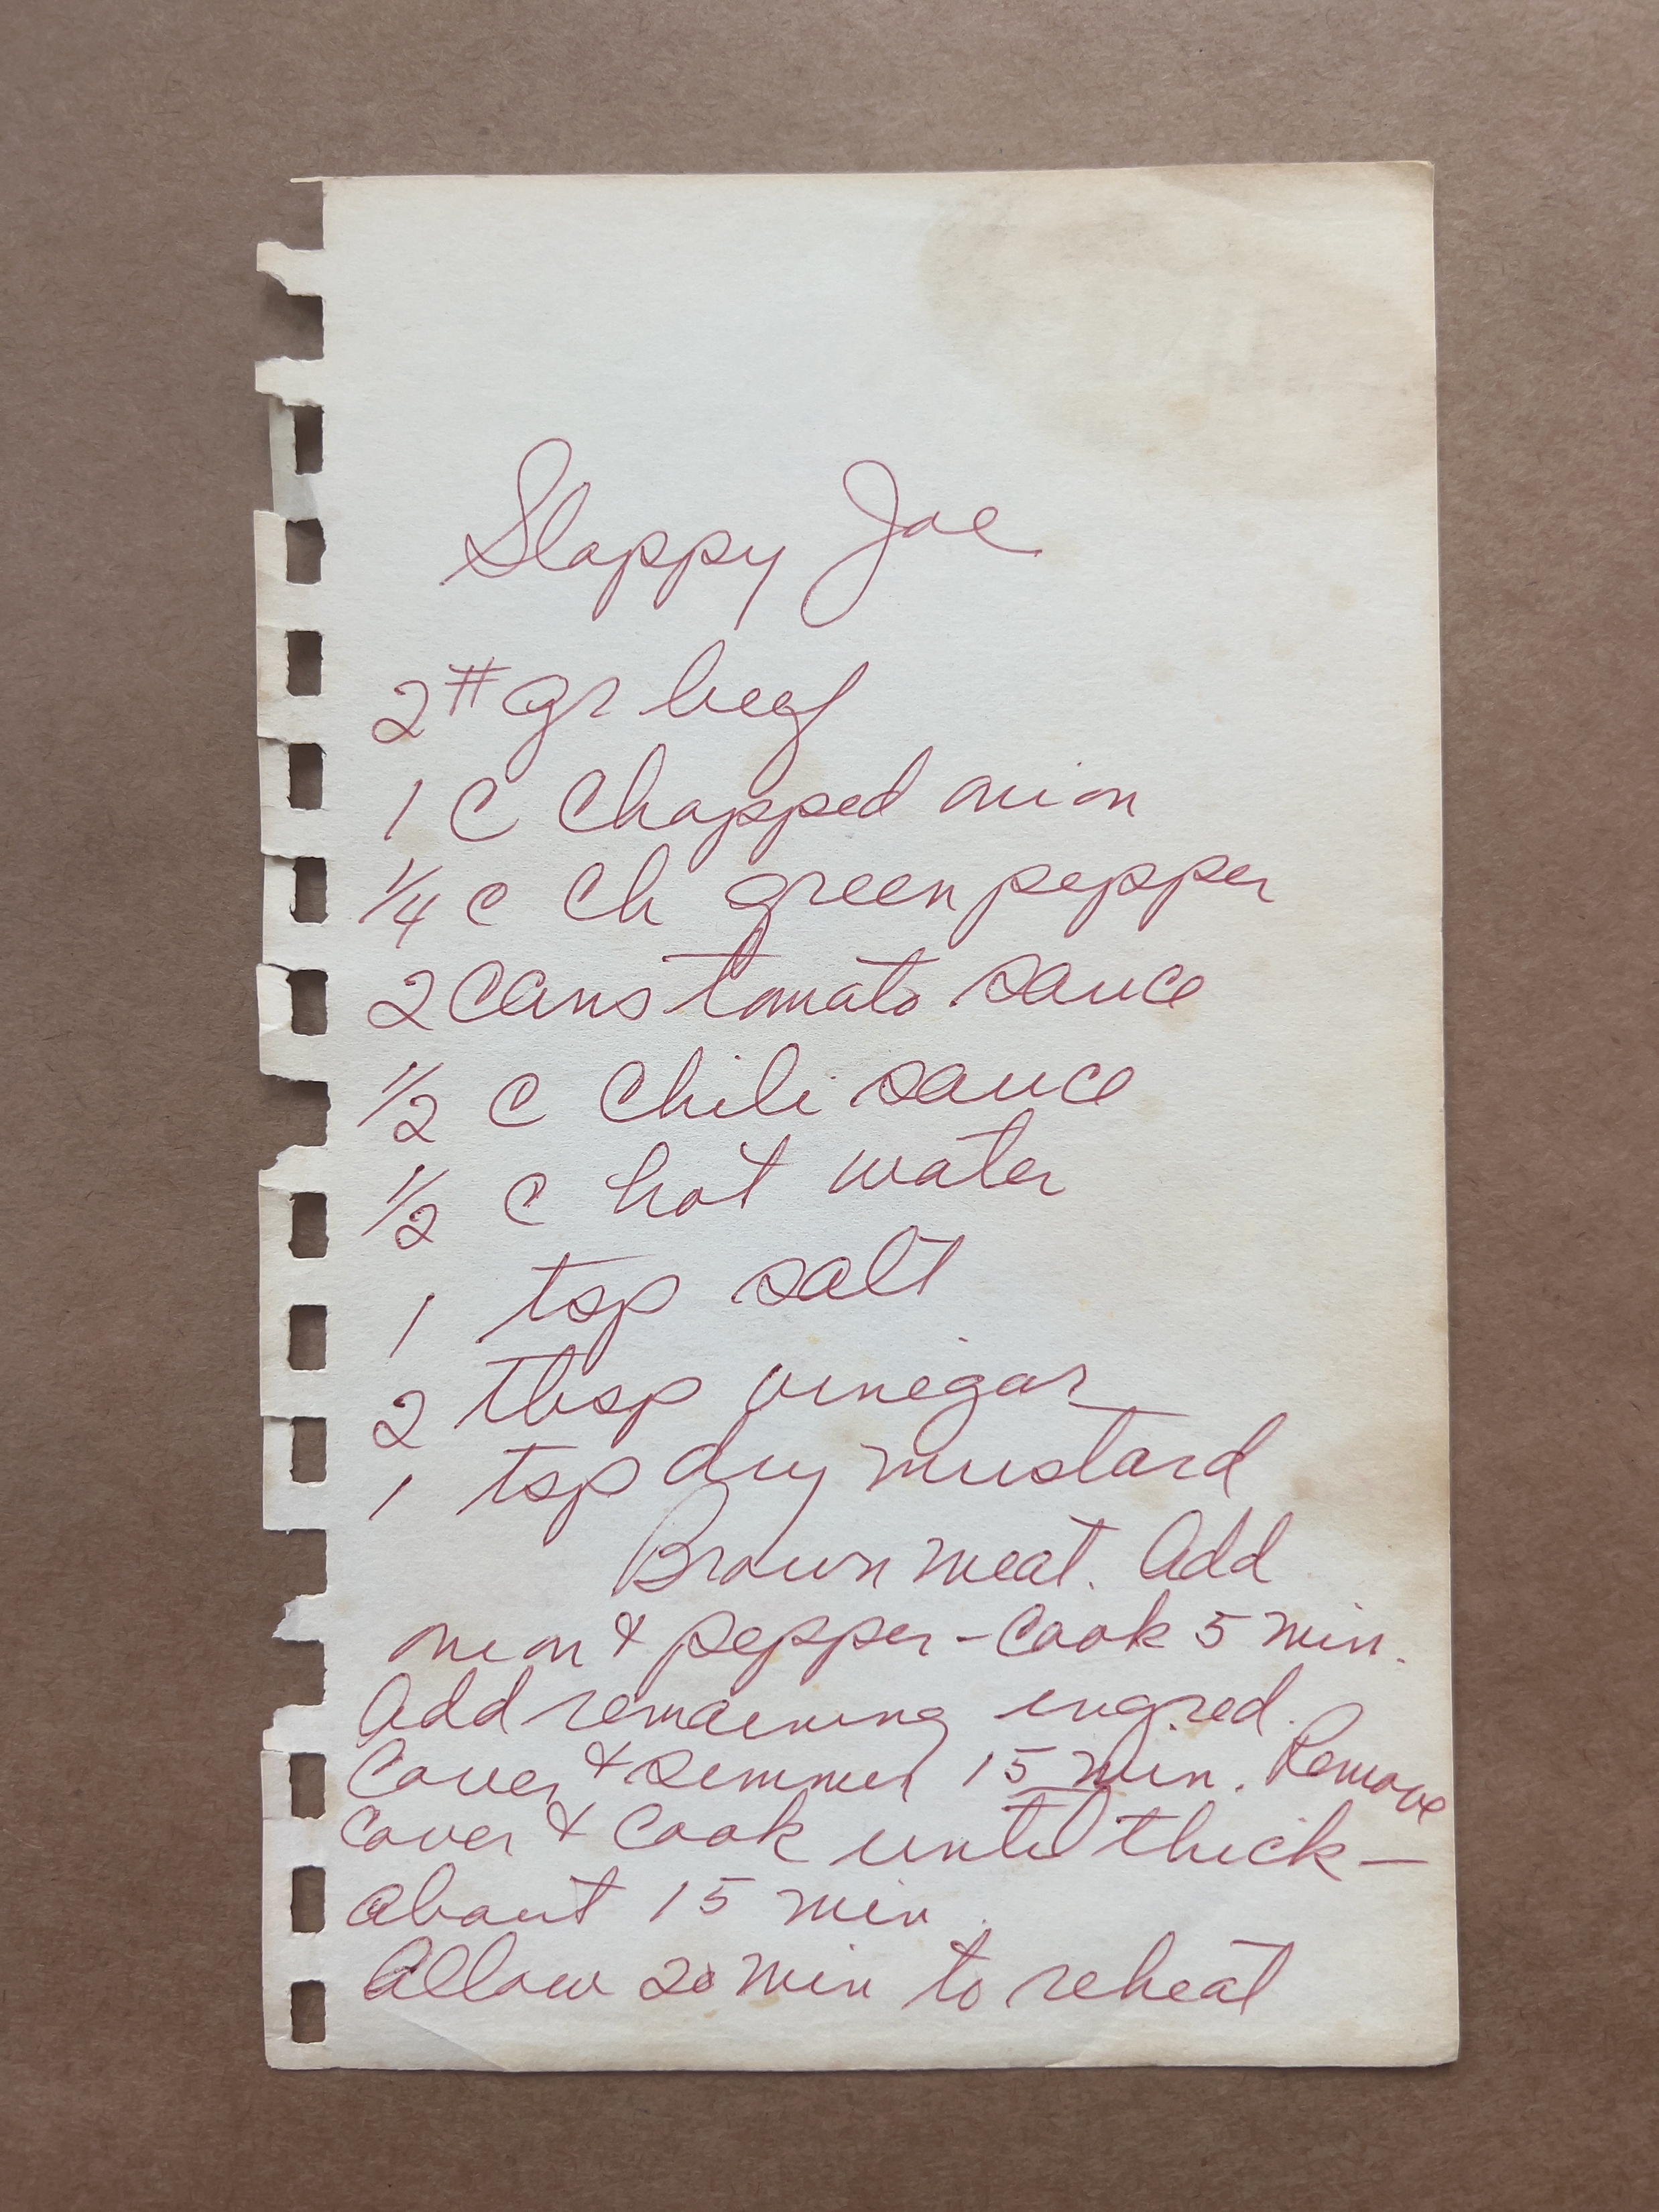 Sloppy Joe
2# gr beef
1 C Chopped onion
1/4 C Ch green pepper
2 Cans tomato sauce
1/2 C Chili sauce
1/2 C hot water
1 tsp salt
2 tbsp vinegar
1 tsp dry mustard
Brown meat. Add
onion & pepper - Cook 5 min.
Add remaining ingred.
Cover & simmer 15 min. Remove
Cover & Cook until thick -
about 15 min.
Allow 20 min to reheat